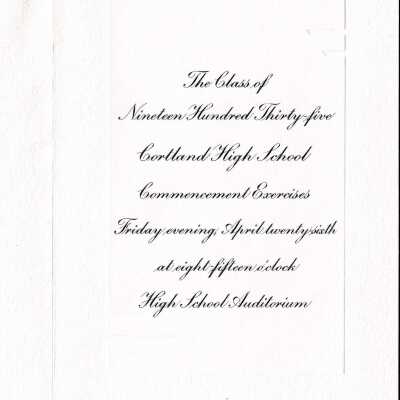 The Class of
Nineteen Hundred Thirty-five
Cortland High School
Commencement Exercises
Friday evening, April twenty-sixth
at eight-fifteen o'clock
High School Auditorium